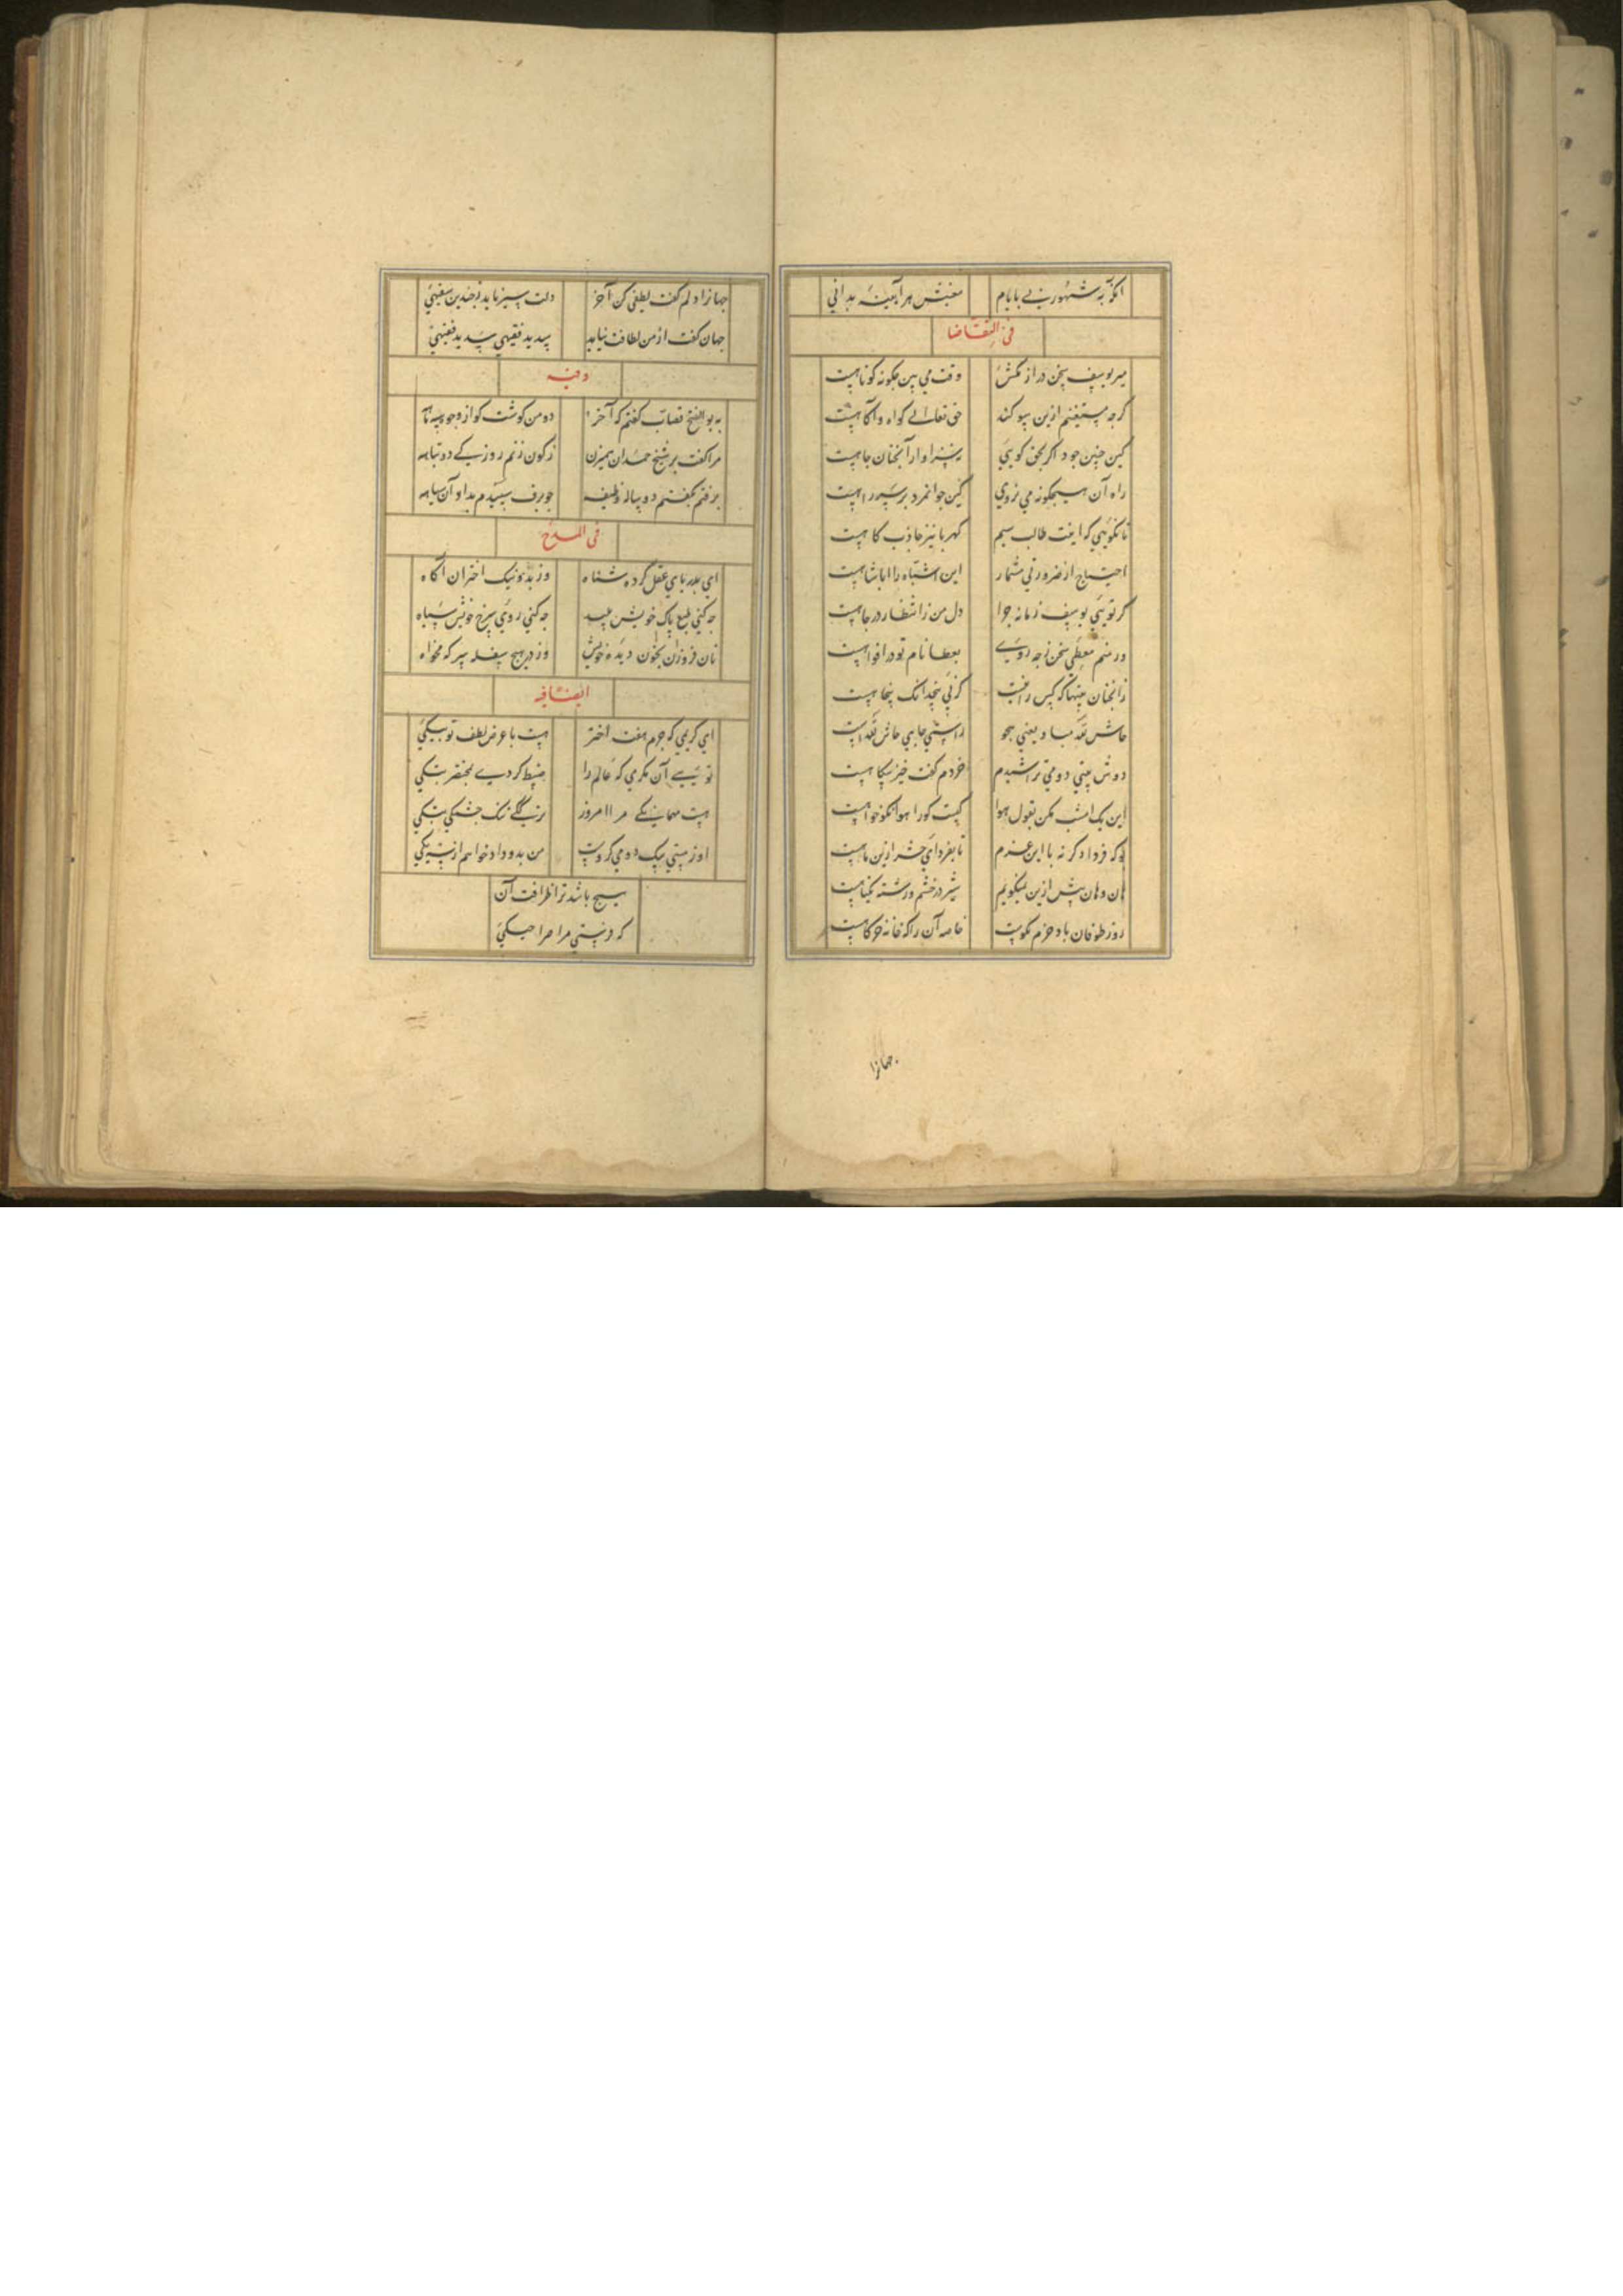 انکو به شهور نی با یام معنیش هر آینه بدانی
فی التقاضا
میر بوسف سخن دراز مکش وقت می بین جکونه کوتاهست
کرجه مستغنیم ازین سوکند حق تعالی کواه و آکاهست
کین جنین جود اکر بحق کویی سزاوار آنجنان جاهست
راه آن هیچکونه می نروی کین جوانمرد بر سر راهست
تا نکویی که اینت طالب سیم کهربا نیز جاذب کاهست
احتیاج از ضرورتی مشمار این اشتباه را اباشاهست
کر تویی یوسف زمانه جرا دل من ز انتظار در جاهست
ور منم معطی سخن زجه روی بعطا نام تو در افواهست
زانجنان بیتها که کس را نیست کرنی پنجد انک پنجاهست
حاش لله مبادا یعنی هجو راستی جای حاش لله است
دوش بیتی دو می تراشیدم خردم کفت خیز بیکاهست
این یک امشب مکن بقول هوا کیست کو را هوا نکوخواهست
کو که فردا دکر نه با این عزم تا بفردای حشر ازین ماهست
هان و هان بیش ازین نمیکویم شیر در خشم و رشته یکتاهست
روز طوفان باد حزم نکوست خاصه آن را که خانه خرکاهست
جهانرا
جهانرا دلم کفت لطفی کن آخر دلت سیر ناید ز چندین سفیهی
جهان کفت از من لطافت نیاید پدید فقیهی پدید فقیهی
وفیه
به بو الفتح قصاب کفتم که آخر دو من کوشت کو از وجوه سیه نا
مرا کفت بر شیخ حمدان همیزن ز کون زنم روزیکی دو تباهه
برفتم بکفتم دو پیاله وظیفه جو برف سپیدم بداد آن سیاهه
فی المدح
ای بدریای عقل کرده شناه وز بد و نیک اختران آکاه
جه کنی طبع پاک خویش پلید جه کنی روی سرخ خویش سیاه
نان فروزن بخون دیده خویش وز در هیچ سفله سرکه مخواه
ایضا فیه
ای کریمی که جرم هفت اختر هست با عرض لطف تو سبکی
تویی آن مکرمی که عالم را ضبط کردی بمختصر نتکی
هست مهمانکی مرا امروز نزککی تنک جشمکی بتکی
او ز مستی سیک دو می کروست من بدو داد خواهم از نیزیکی
هیج باشد ترا ظرافت آن
که فرستی مرا مرا حیکی